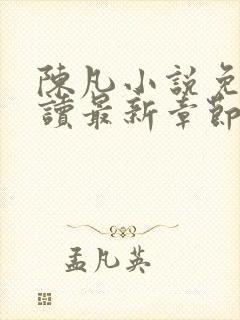 陳凡小說免
讀最新章節
孟凡英